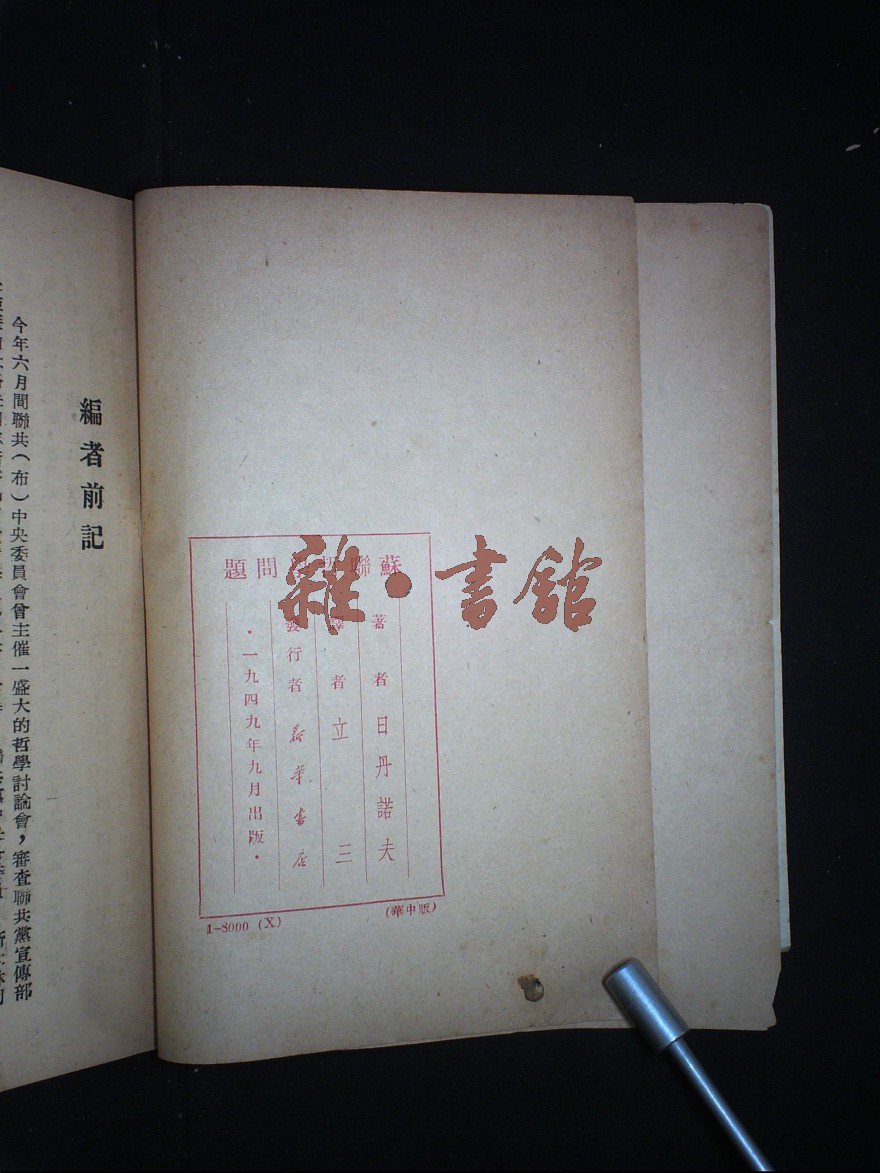 蘇聯哲學問題
著者日丹諾夫
譯者立三
發行者新華書店
·一九四九年九月出版·
(華中版)
1-8000 (X)
雜·書館
編者前記
今年六月間聯共（布）中央委員會曾主催一盛大的哲學討論會，審查聯共黨宣傳部